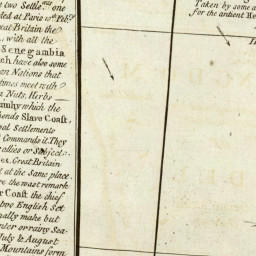 two Settle.ts one
ded at Paris 10th Feb.y
reat Britain the
, with all the
Senegambia
ch have also some
an Nations that
times meet with
a Nuts, Herbs
which the
hends Slave Coast,
pal Settlements
Commands it. They
allies or Subjects
es. Great Britain
t at the same place.
re the wast remark
r Coast the chief
two English Set
ually make but
nter or rainy Sea
July & August
Mountains form
Taken by some a
for the antient He